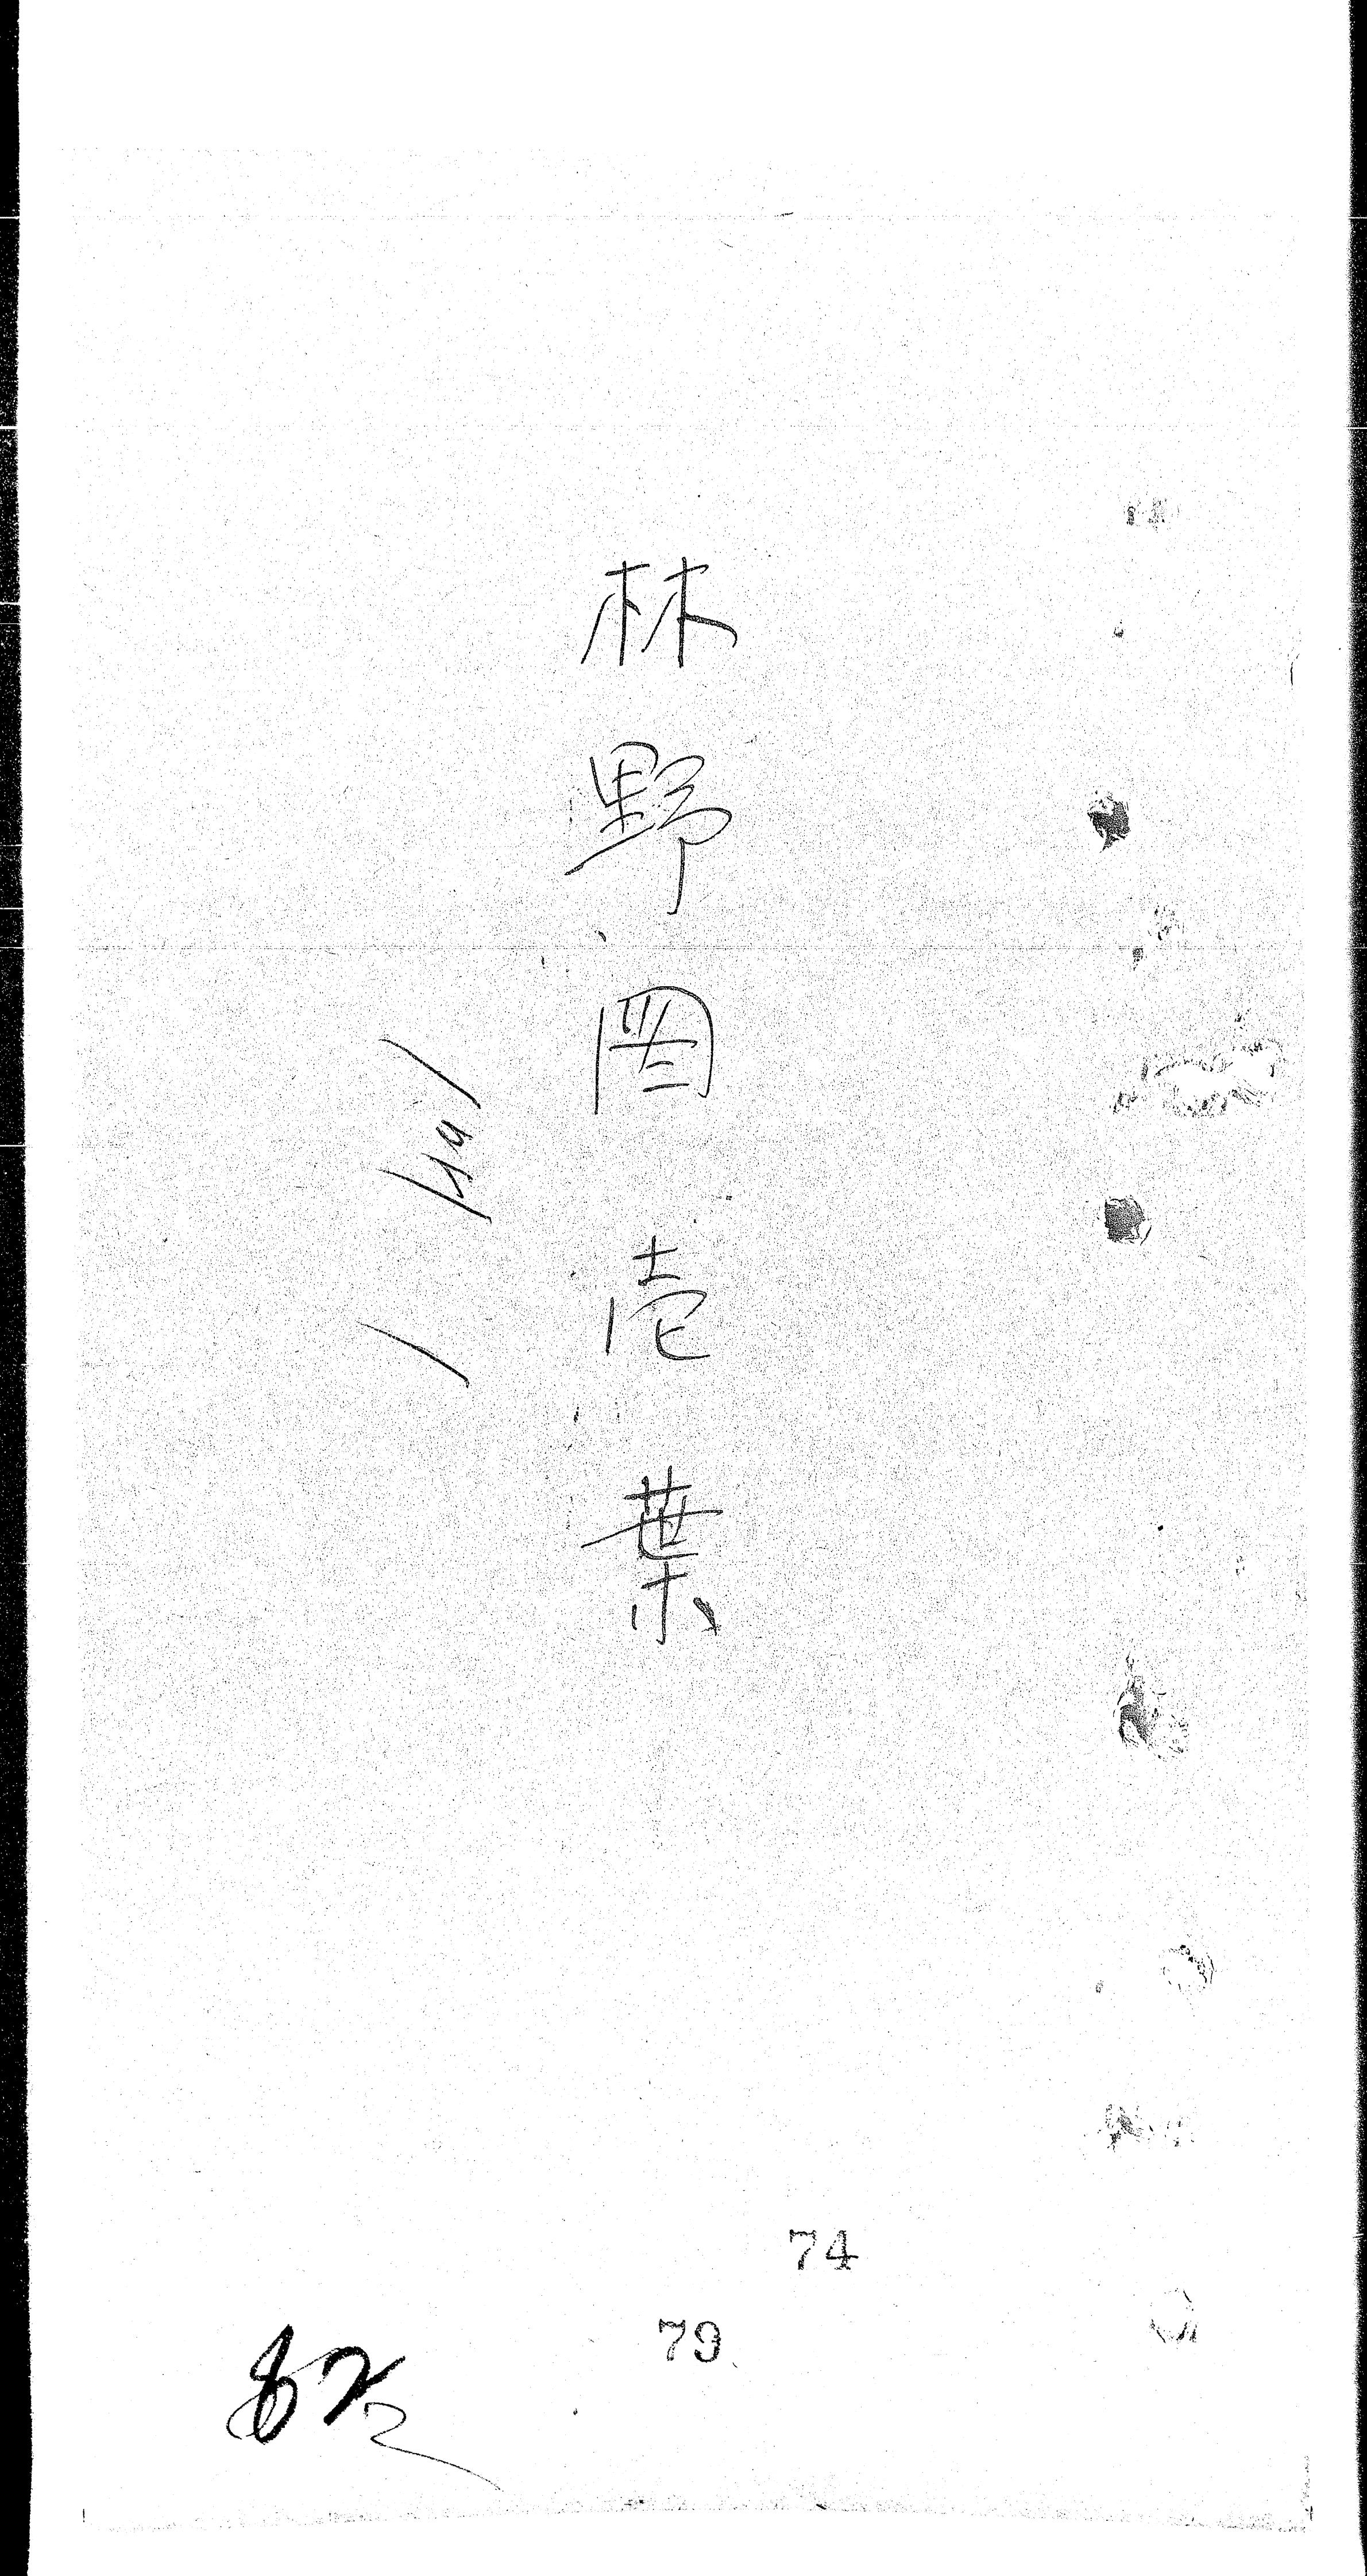 林野圖壱葉
74
79
82